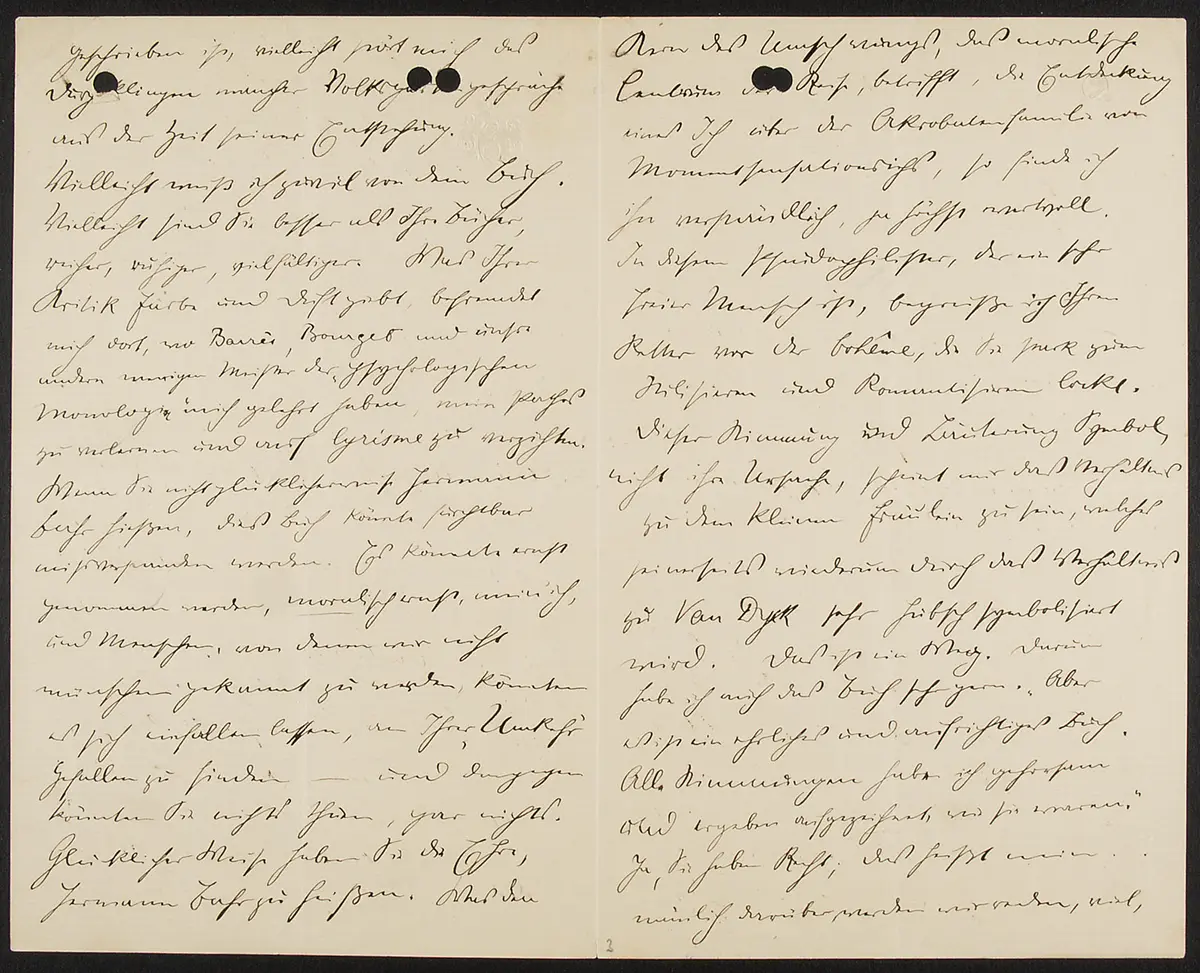 geschrieben ist, vielleicht stört mich das
Durchklingen mancher gespräche
aus der Zeit seiner Entstehung.
Vielleicht weiß ich zuviel von dem Buch.
Vielleicht sind Sie besser als Ihre Bücher,
weicher, ruhiger, vielfältiger. Was Ihrer
Kritik Farbe und Duft giebt, befremdet
mich dort, wo Barrès, Bourget und unsre
andern wenigen Meister der „psychologischen
Monologie“ mich gelehrt haben, mein Pathos
zu verlernen und auf lyrisme zu verzichten.
Wenn Sie nicht glücklicherweise Hermann
Bahr hießen, dies Buch könnte furchtbar
missverstanden werden. Es könnte ernst
genommen werden, moralisch ernst, mein ich,
und Menschen, von denen wir nicht
wünschen gekannt zu werden, könnten
es sich einfallen lassen, an Ihrer „Umkehr“
Gefallen zu finden — und dagegen
könnten Sie nichts thun, gar nichts.
Glücklicher Weise haben Sie die Ehre,
Hermann Bahr zu heißen. Was den
Kern des Umschwungs, das moralische
Centrum der Reise, betrifft, die Entdeckung
eines Ich über der Akrobatenfamilie von
Momentsensationsichs, so finde ich
ihn verständlich, ja höchst wertvoll.
In diesem Pseudophilister, der ein sehr
freier Mensch ist, begrüße ich Ihren
Retter vor der bohême, die Sie stark zum
Stilisieren und Romantisieren lockt.
Dieser Stimmung und Läuterung Symbol,
nicht ihre Ursache, scheint mir das Verhältnis
zu dem kleinen Fräulein zu sein, welches
seinerseits wiederum durch das Verhältnis
zu Van Dyck sehr hübsch symbolisiert
wird. Das ist ein Weg. Darum
habe ich auch das Buch sehr gern. „Aber
es ist ein ehrliches und aufrichtiges Buch.
Alle Stimmungen habe ich gehorsam
und ergeben aufgezeichnet, wie sie waren.“
Ja, Sie haben Recht; das heißt nein . .
mündlich darüber werden wir reden, viel,
2